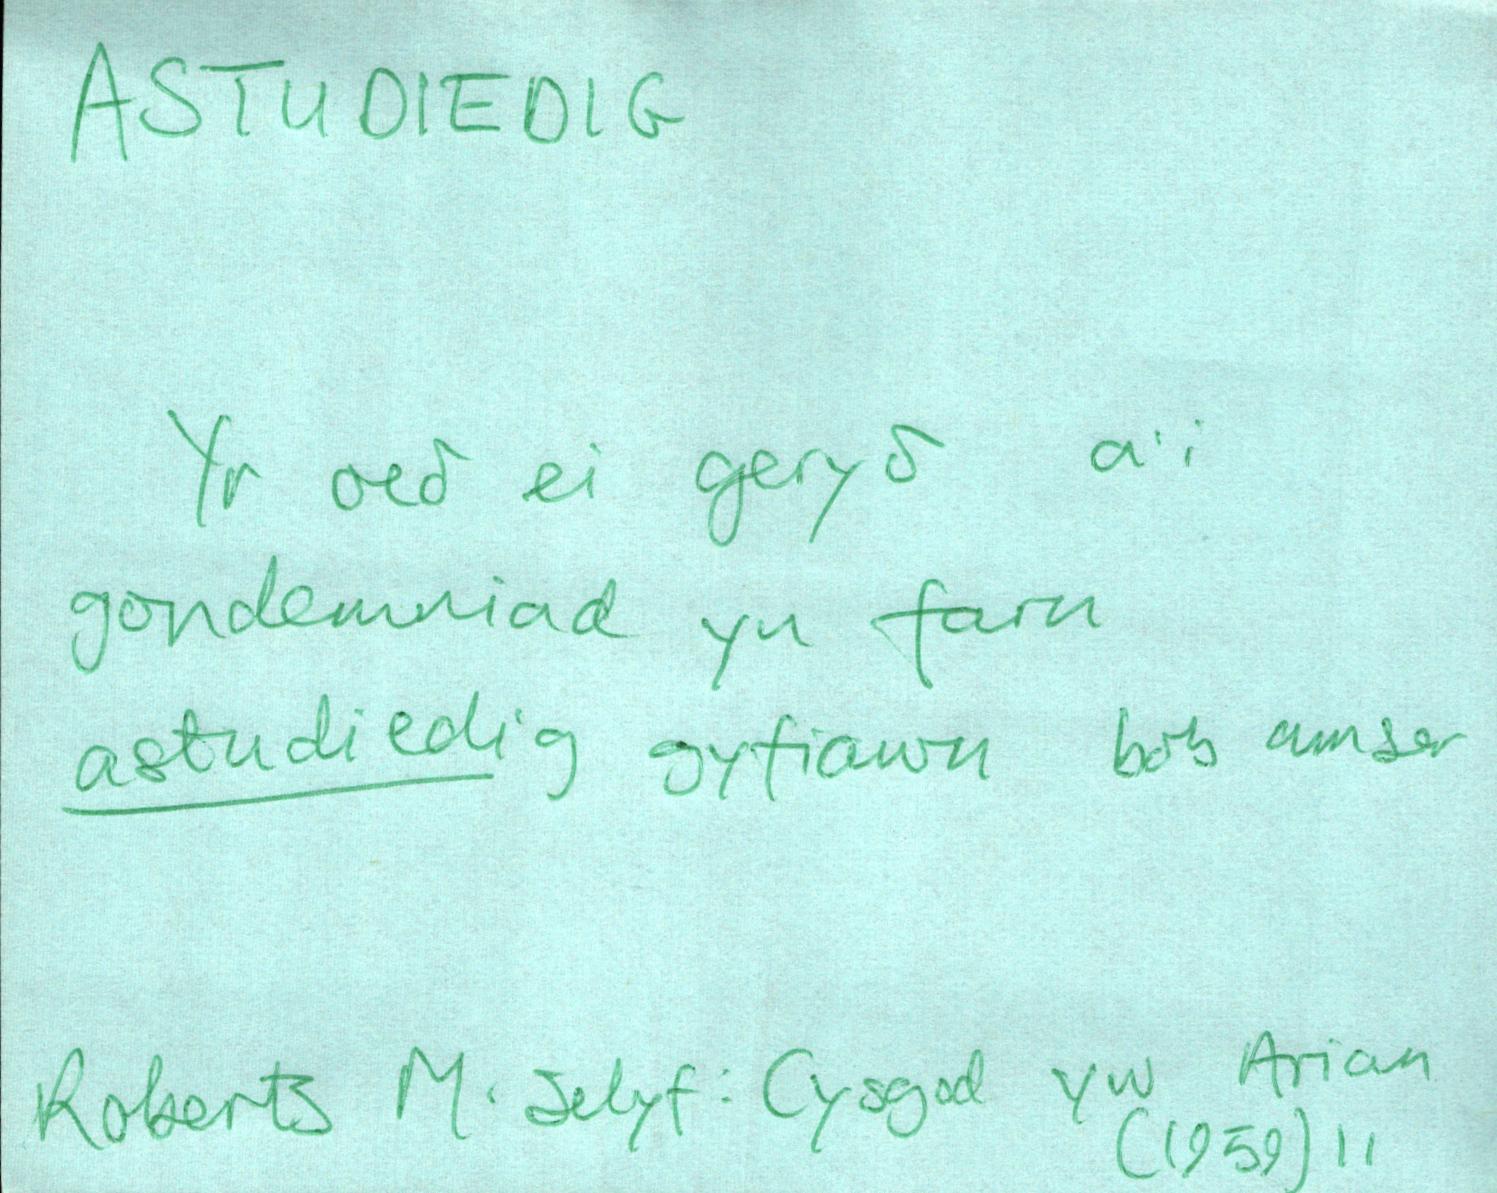 ASTUDIEDIG
Yr oeδ ei geryδ a'i
gondemniad yn farn
astudiedig gyfiawn bob amser
Roberts M. Selyf: Cysgod yw Arian
(1959) 11